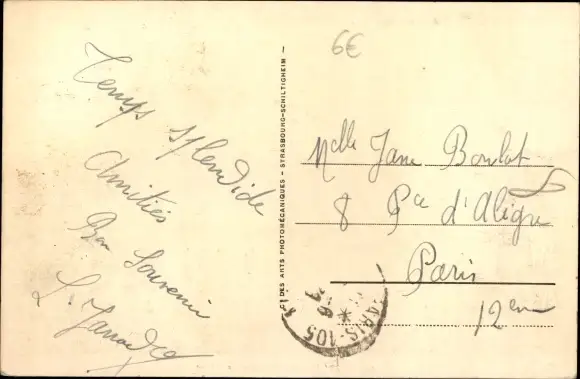 Temps splendide
Amitiés
Bon Souvenir
6€
Cie DES ARTS PHOTOMÉCANIQUES - STRASBOURG-SCHILTIGHEIM -
Melle Jane Boulat
8 Pce d'Aligre
Paris
12em
PARIS-105